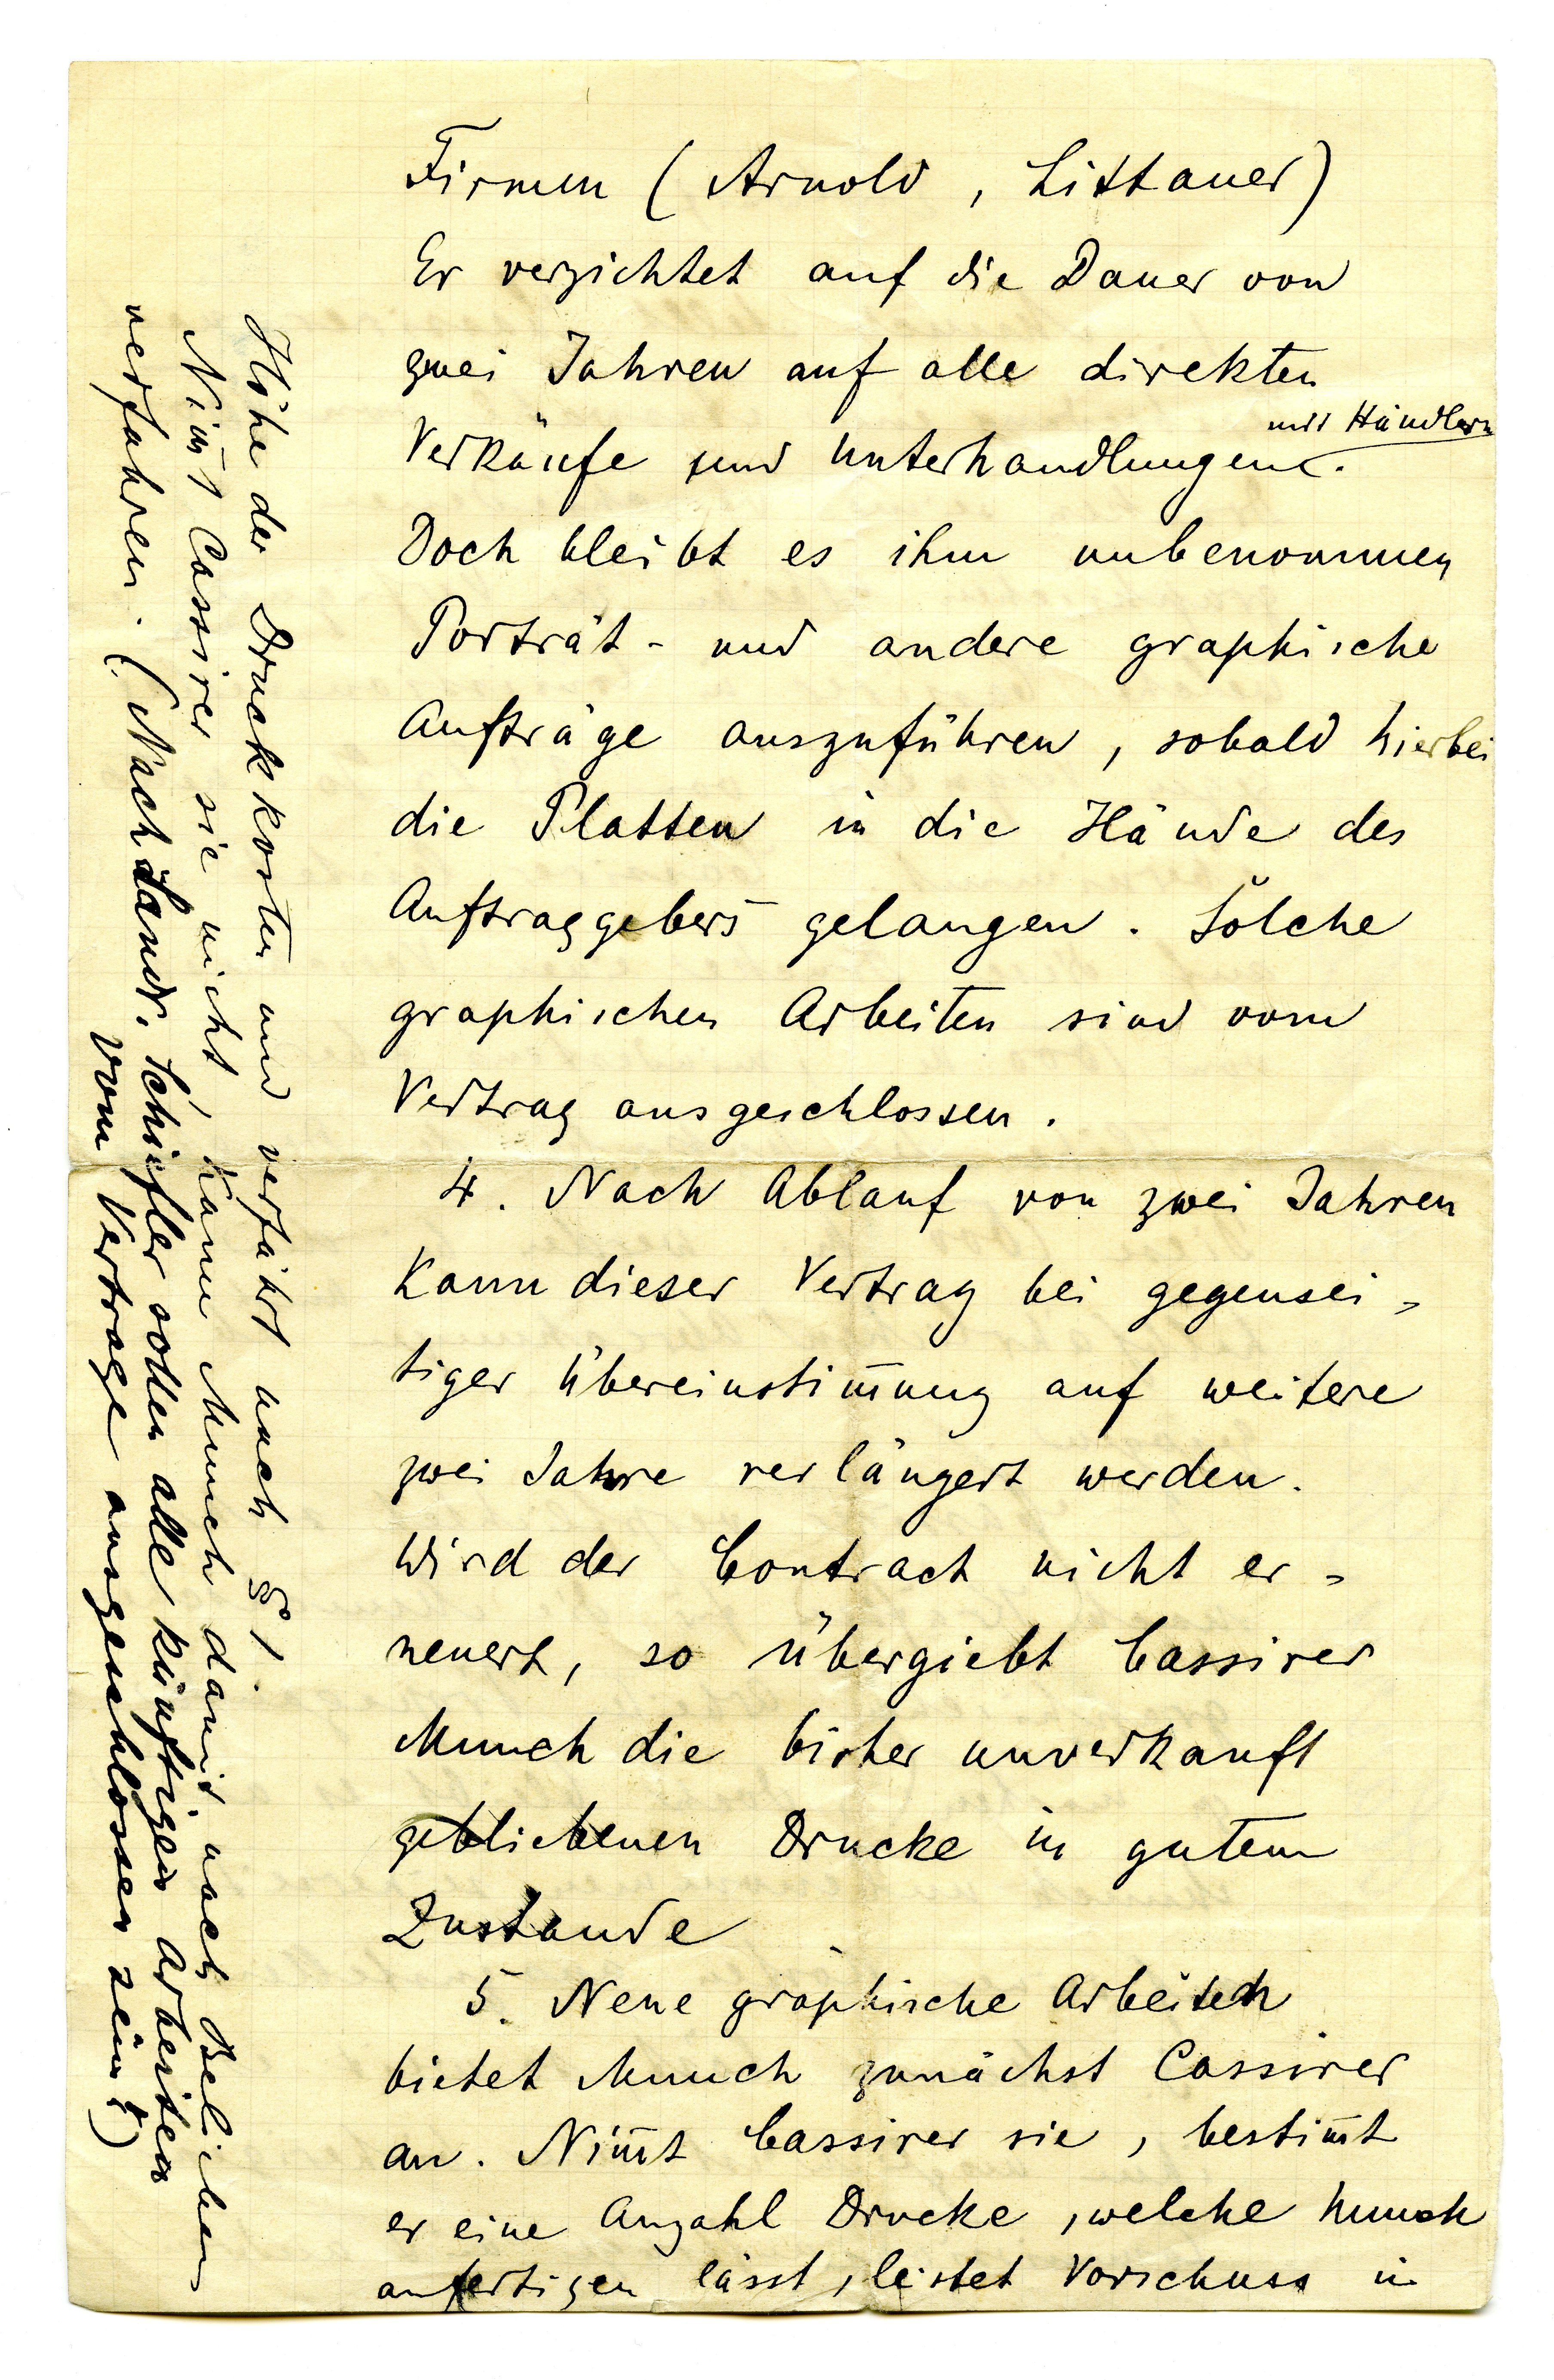 Firmen (Arnold, Littauer)
Er verzichtet auf die Dauer von
zwei Jahren auf alle direkten
mit Händlern
Verkäufe und Unterhandlungen.
Doch bleibt es ihm unbenommen
Porträt- und andere graphische
Aufträge auszuführen, sobald hierbei
die Platten in die Hände des
Auftraggebers gelangen. Solche
graphischen Arbeiten sind vom
Vertrag ausgeschlossen.
4. Nach Ablauf von zwei Jahren
kann dieser Vertrag bei gegensei-
tiger Übereinstim̅ung auf weitere
zwei Jahre verlängert werden.
Wird der Contract nicht er-
neuert, so übergiebt Cassirer
Munch die bisher unverkauft
gebliebenen Drucke in gutem
Zustande
5. Neue graphische Arbeiten
bietet Munch zunächst Cassirer
an. Nim̅t Cassirer sie, bestim̅t
er eine Anzahl Drucke, welche Munch
anfertigen lässt, leistet Vorschuss in
Höhe der Druckkosten und verfährt nach § 1.
Nim̅t Cassirer sie nicht, kann Munch damit nach Belieben
verfahren. (Nach Landr. Schiefler sollen alle künftigen Arbeiten
vom Vertrage ausgeschlossen sein!)